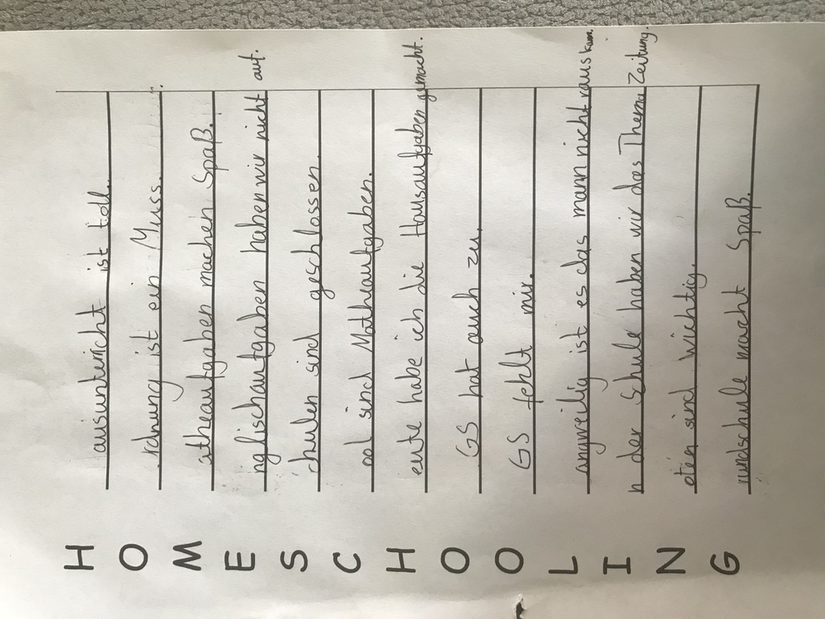 H ausunterricht ist toll.
O rdnung ist ein Muss.
M atheaufgaben machen Spaß.
E nglischaufgaben haben wir nicht auf.
S chulen sind geschlossen.
C ool sind Matheaufgaben.
H eute habe ich die Hausaufgaben gemacht.
O GS hat auch zu.
O GS fehlt mir.
L angweilig ist es das mann nicht raus kann
I n der Schule haben wir das Thema Zeitung.
N oten sind wichtig.
G rundschule macht Spaß.